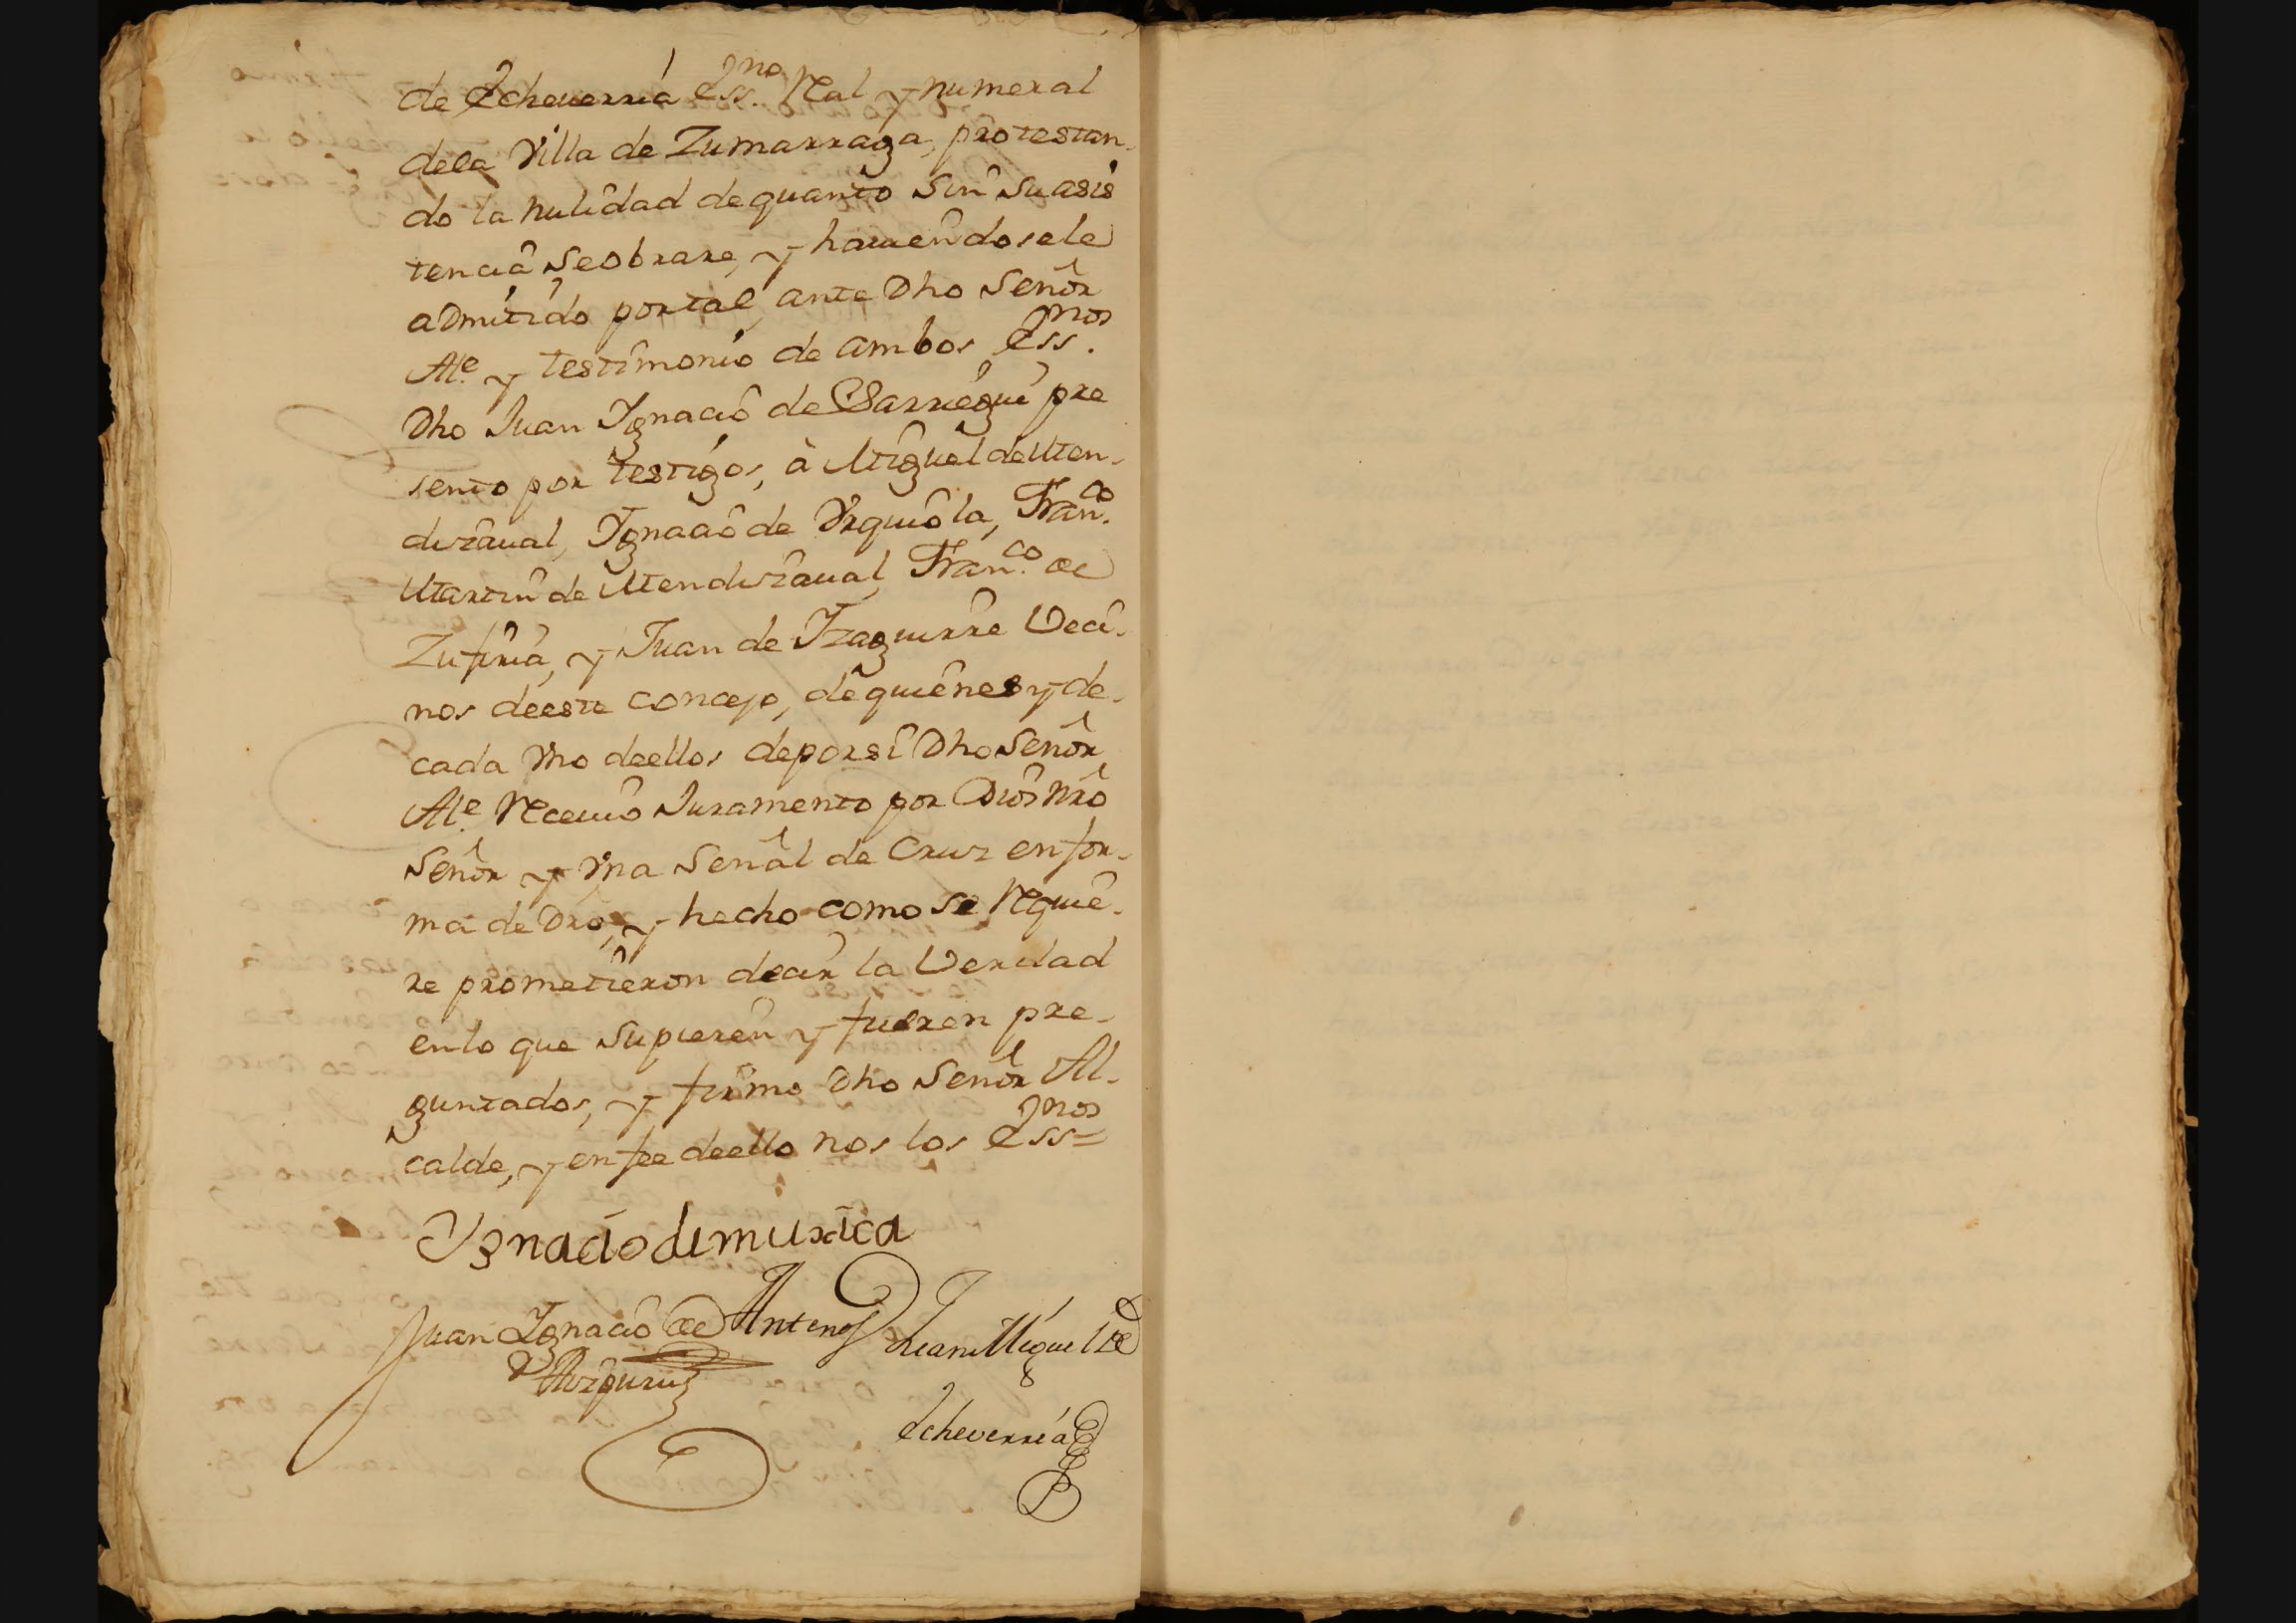 de Echeverria Essno Real y numeral
dela Villa de Zumarraga, protestan-
do la nulidad de quanto sin su asis
tencia se obrare, y haviendosele
admitido por tal, ante Dho Señor
Ale. y testimonio de ambos Essnos.
Dho Juan Ygnacio de Barriegui pre
sento por testigos, à Miguel de Men-
dizaval, Ygnacio de Vrquiola, Franco.
Martin de Mendizaval, Franco. de
Zufiria, y Juan de Yzaguirre Veci-
nos de este concejo, de quienes y de
cada Vno de ellos de por si Dho Señor
Ale. Recevio Juramento por Dios Nro
Señor y Vna Señal de Cruz en for-
ma de Dro, y hecho como se Requie-
re prometieron decir la Verdad
en lo que supieren y fueren pre-
guntados, y firmo Dho Señor Al-
calde, y en fee de ello nos los Essnos=
Ygnacio de muxica
Juan Ygnacio de Antemi Juan Miguel de
Azpuru
Echeverria